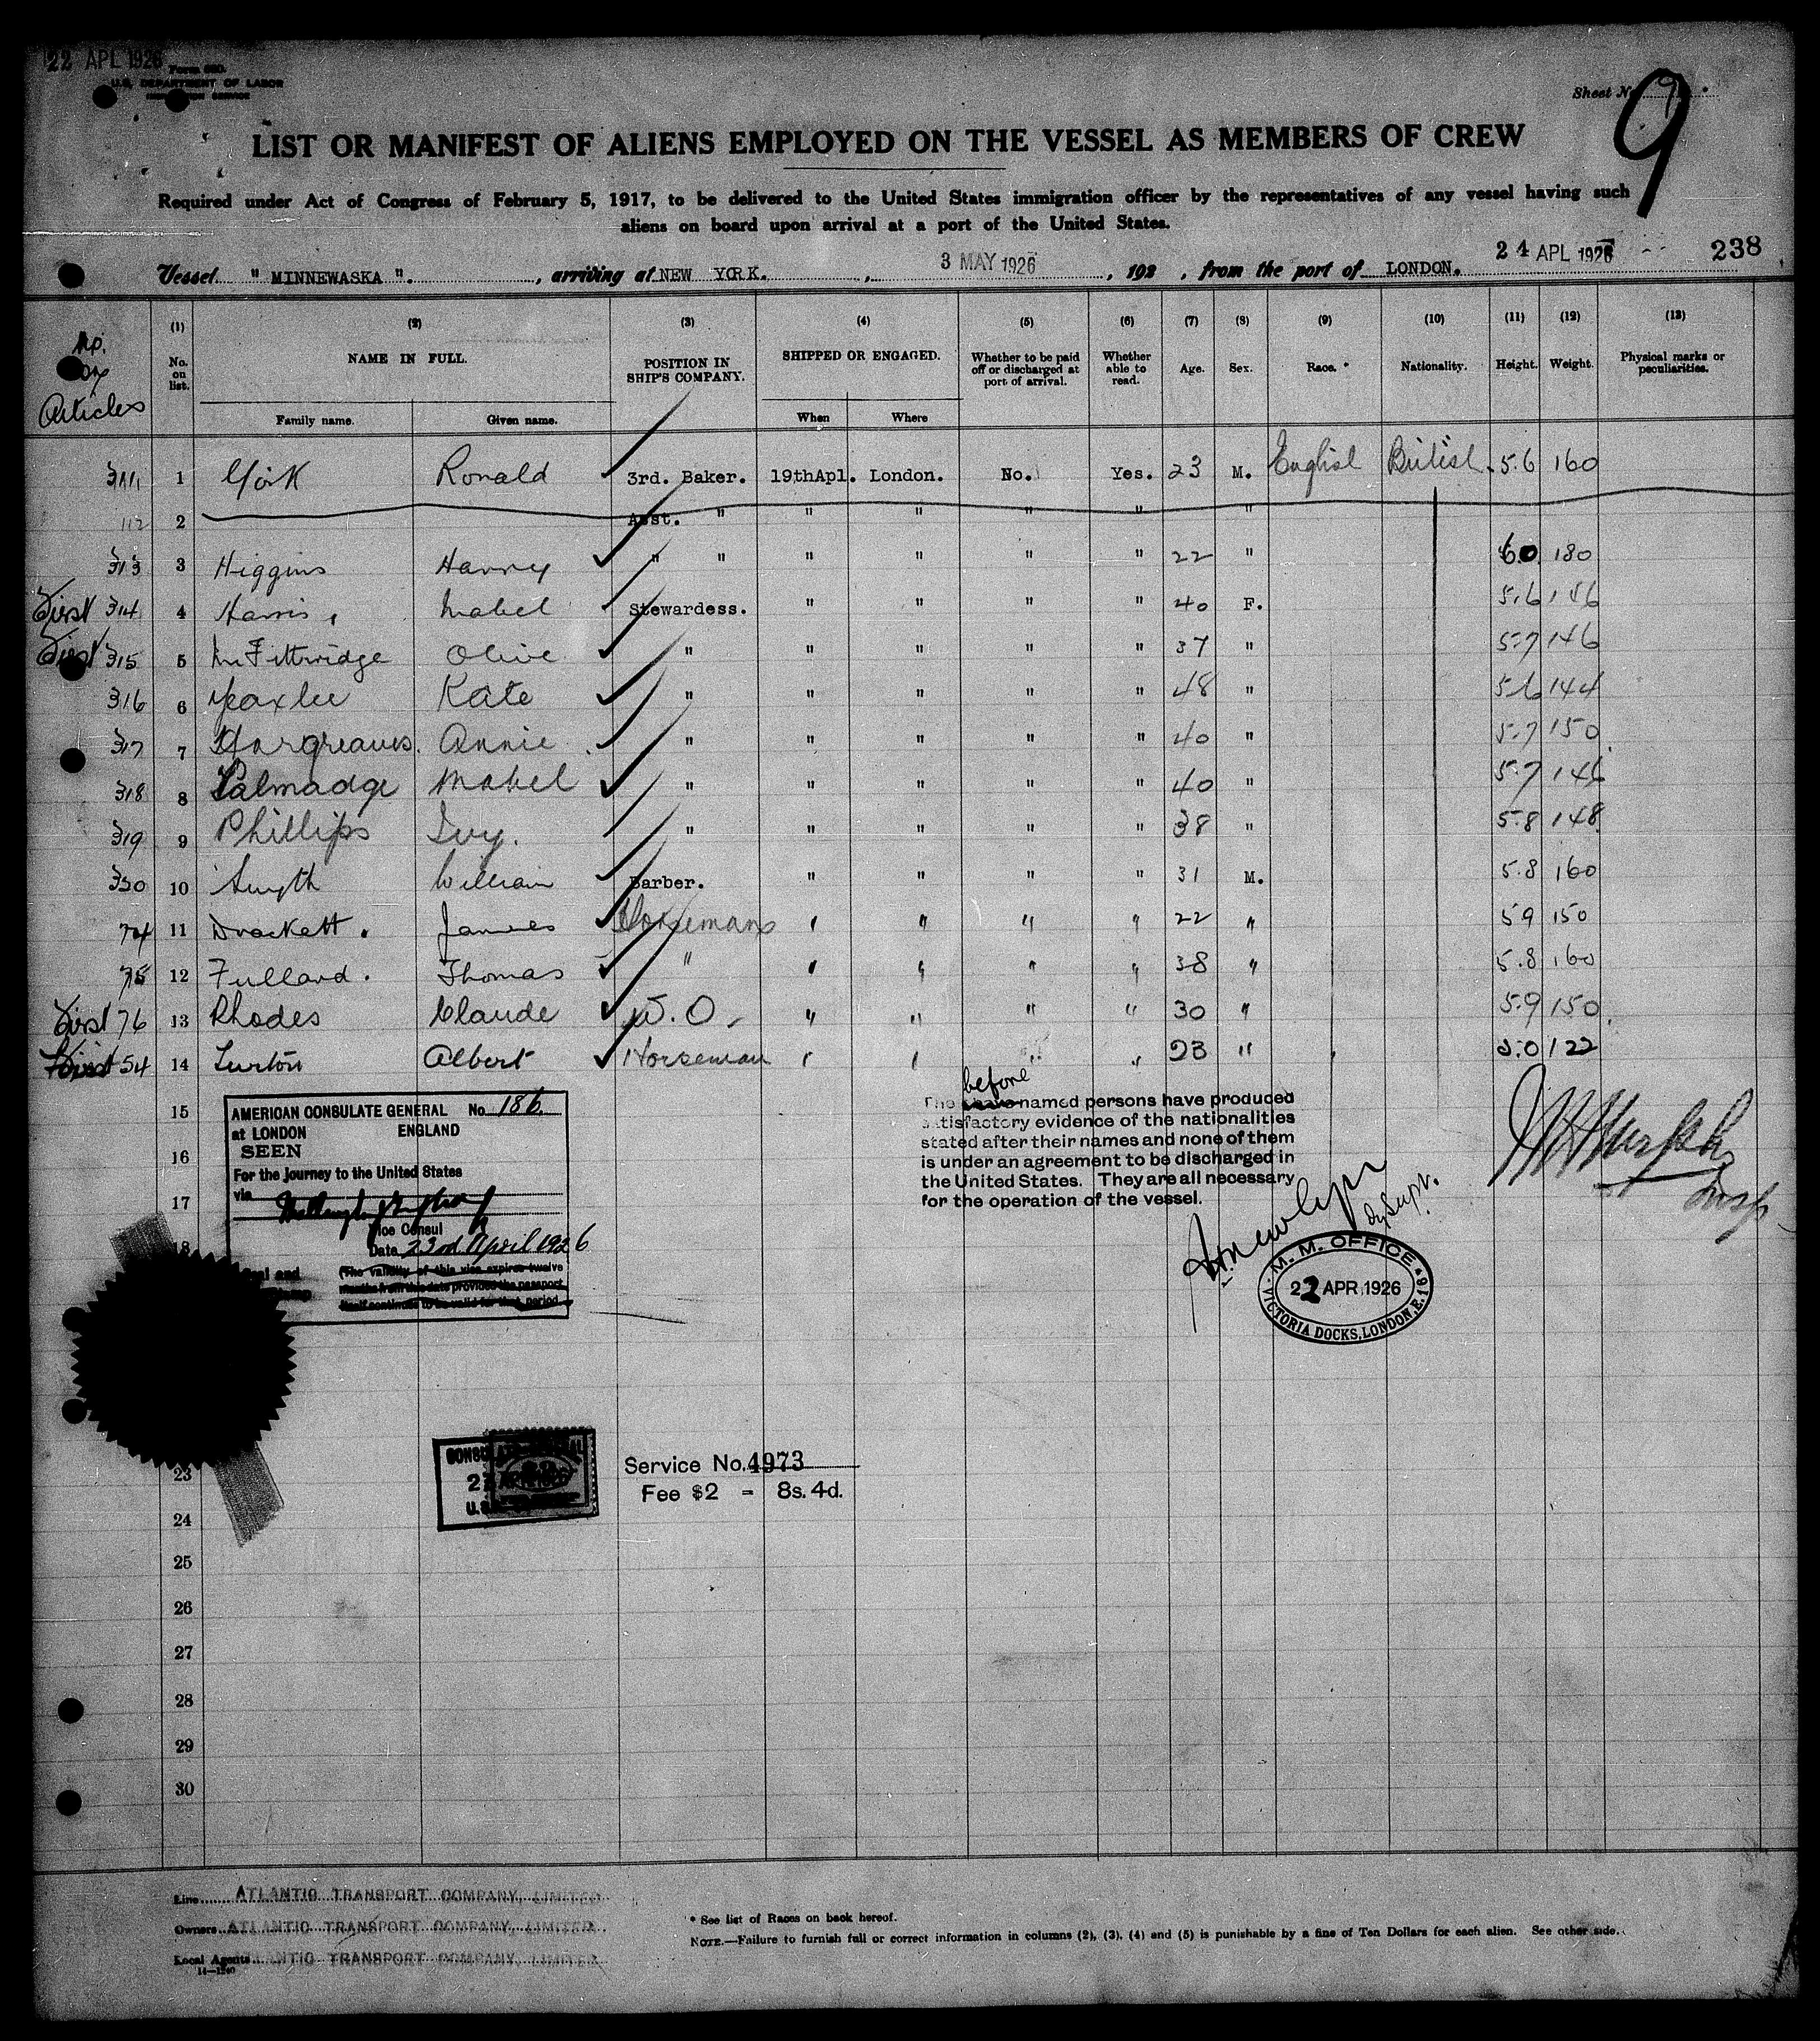 22 APL 1926
Form 680
U.S. DEPARTMENT OF LABOR
IMMIGRATION SERVICE
Sheet No. 9
9
LIST OR MANIFEST OF ALIENS EMPLOYED ON THE VESSEL AS MEMBERS OF CREW
Required under Act of Congress of February 5, 1917, to be delivered to the United States immigration officer by the representatives of any vessel having such
aliens on board upon arrival at a port of the United States.
Vessel " MINNEWASKA ". , arriving at NEW YORK. , 3 MAY 1926 , 192 , from the port of LONDON. 24 APL 1926 238
No. on Articles (1) No. on list. (2) NAME IN FULL. (3) POSITION IN SHIP'S COMPANY. (4) SHIPPED OR ENGAGED. (5) Whether to be paid off or discharged at port of arrival. (6) Whether able to read. (7) Age. (8) Sex. (9) Race. * (10) Nationality. (11) Height. (12) Weight. (13) Physical marks or peculiarities.
Family name. Given name. When Where
311 1 York Ronald 3rd. Baker. 19thApl. London. No. Yes. 23 M. English British. 5.6 160
112 2 Asst. " " " " " "
313 3 Higgins Harry " " " " " " 22 " 6.0 180
First 314 4 Harris, Mabel Stewardess. " " " " 40 F. 5.6 156
First 315 5 Olive " " " " " 37 " 5-7 146
316 6 Yaxlee Kate " " " " " 48 " 5-6 144
317 7 Hargreaves. Annie " " " " " 40 " 5-7 150
318 8 Mabel " " " " " 40 " 5-7 146
319 9 Phillips Ivy. " " " " " 38 " 5-8 148
320 10 Smyth William Barber. " " " " 31 M. 5.8 160
74 11 Brackett. James Horseman " " " " 22 " 5 9 150
75 12 Fullard. Thomas " " " " " 38 " 5.8 160
First 76 13 Rhodes Claude W.O. " " " " 30 " 5-9 150
First 54 14 Albert Horseman " " " " 23 " 5.0 122
15
16
17
18
AMERICAN CONSULATE GENERAL No. 186.
at LONDON ENGLAND
SEEN
For the journey to the United States
via
Vice Consul
Date 23rd April 1926
(The validity of this visa expires twelve
months from this date provided the passport
itself continues to be valid for that period
before
The above named persons have produced
satisfactory evidence of the nationalities
stated after their names and none of them
is under an agreement to be discharged in
the United States. They are all necessary
for the operation of the vessel.
Dy Supt.
M. M. OFFICE
22 APR 1926
VICTORIA DOCKS, LONDON, E.16
Service No. 4973
Fee $2 = 8s. 4d.
23
24
25
26
27
28
29
30
Line ATLANTIC TRANSPORT COMPANY, LIMITED
Owners ATLANTIC TRANSPORT COMPANY, LIMITED.
Local Agents ATLANTIC TRANSPORT COMPANY, LIMITED
14—1240
* See list of Races on back hereof.
NOTE.—Failure to furnish full or correct information in columns (2), (3), (4) and (5) is punishable by a fine of Ten Dollars for each alien. See other side.